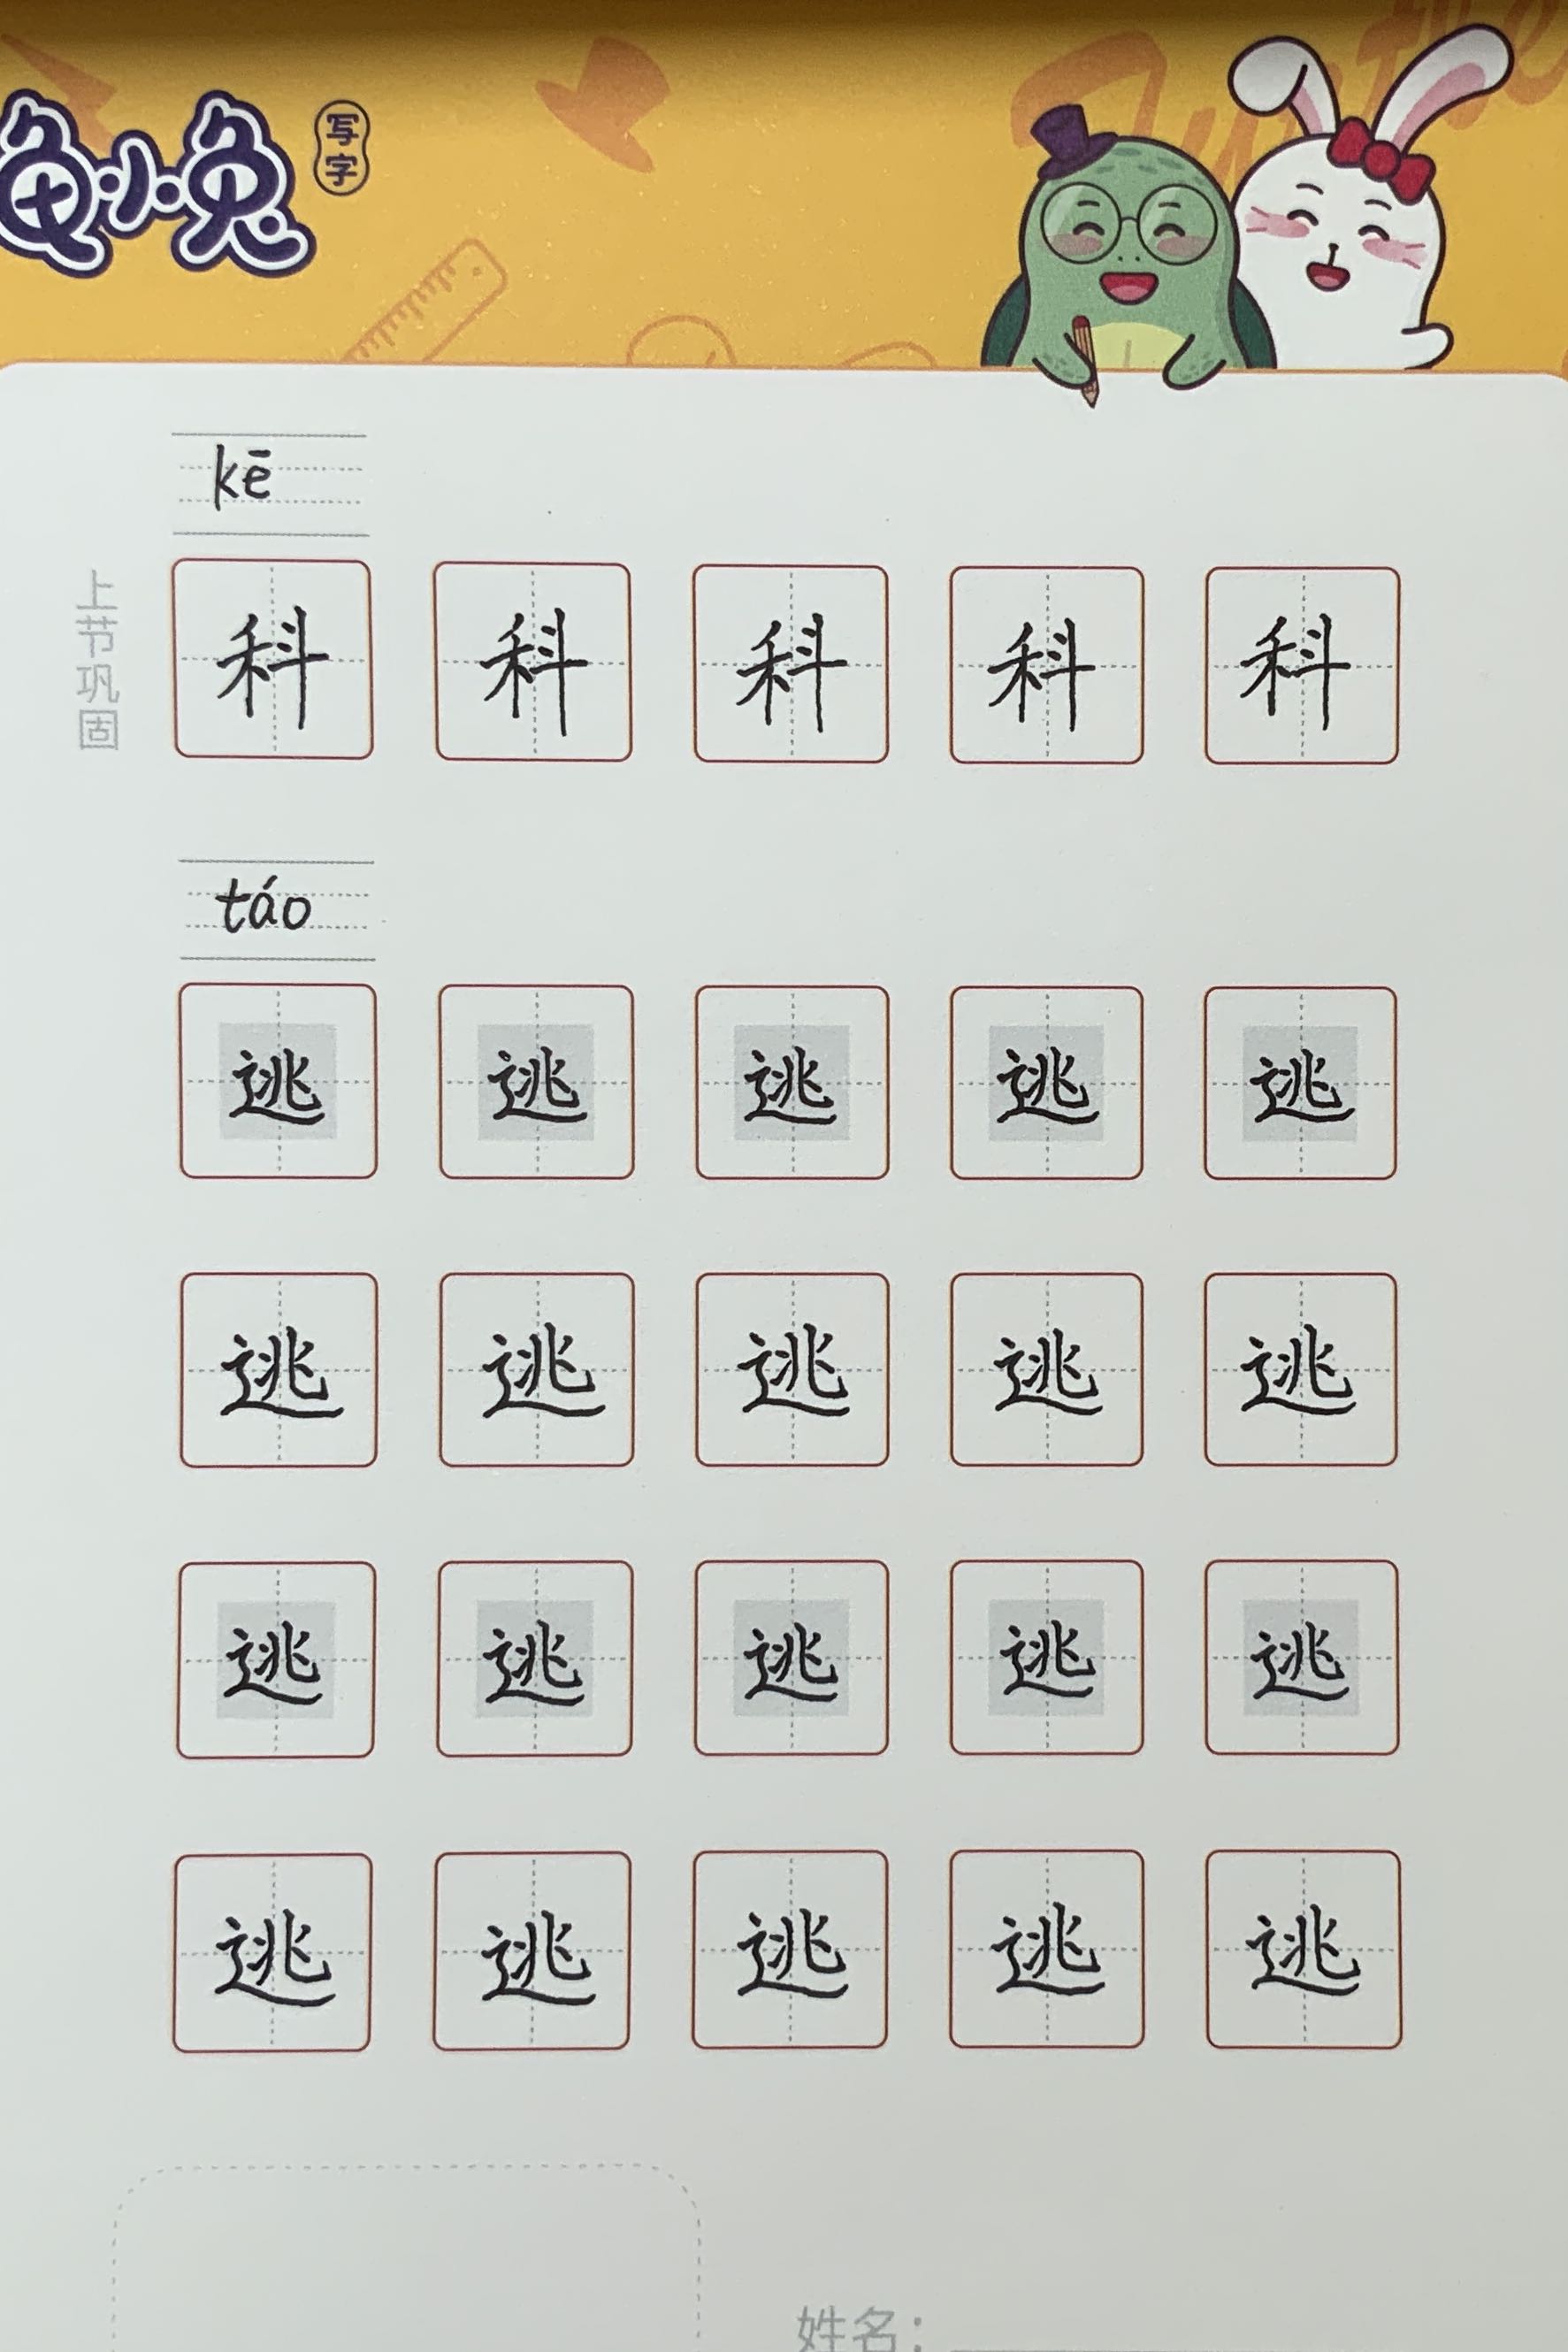 龟小兔
写字
kē
上节巩固
科 科 科 科 科
táo
逃 逃 逃 逃 逃
逃 逃 逃 逃 逃
逃 逃 逃 逃 逃
逃 逃 逃 逃 逃
姓名：